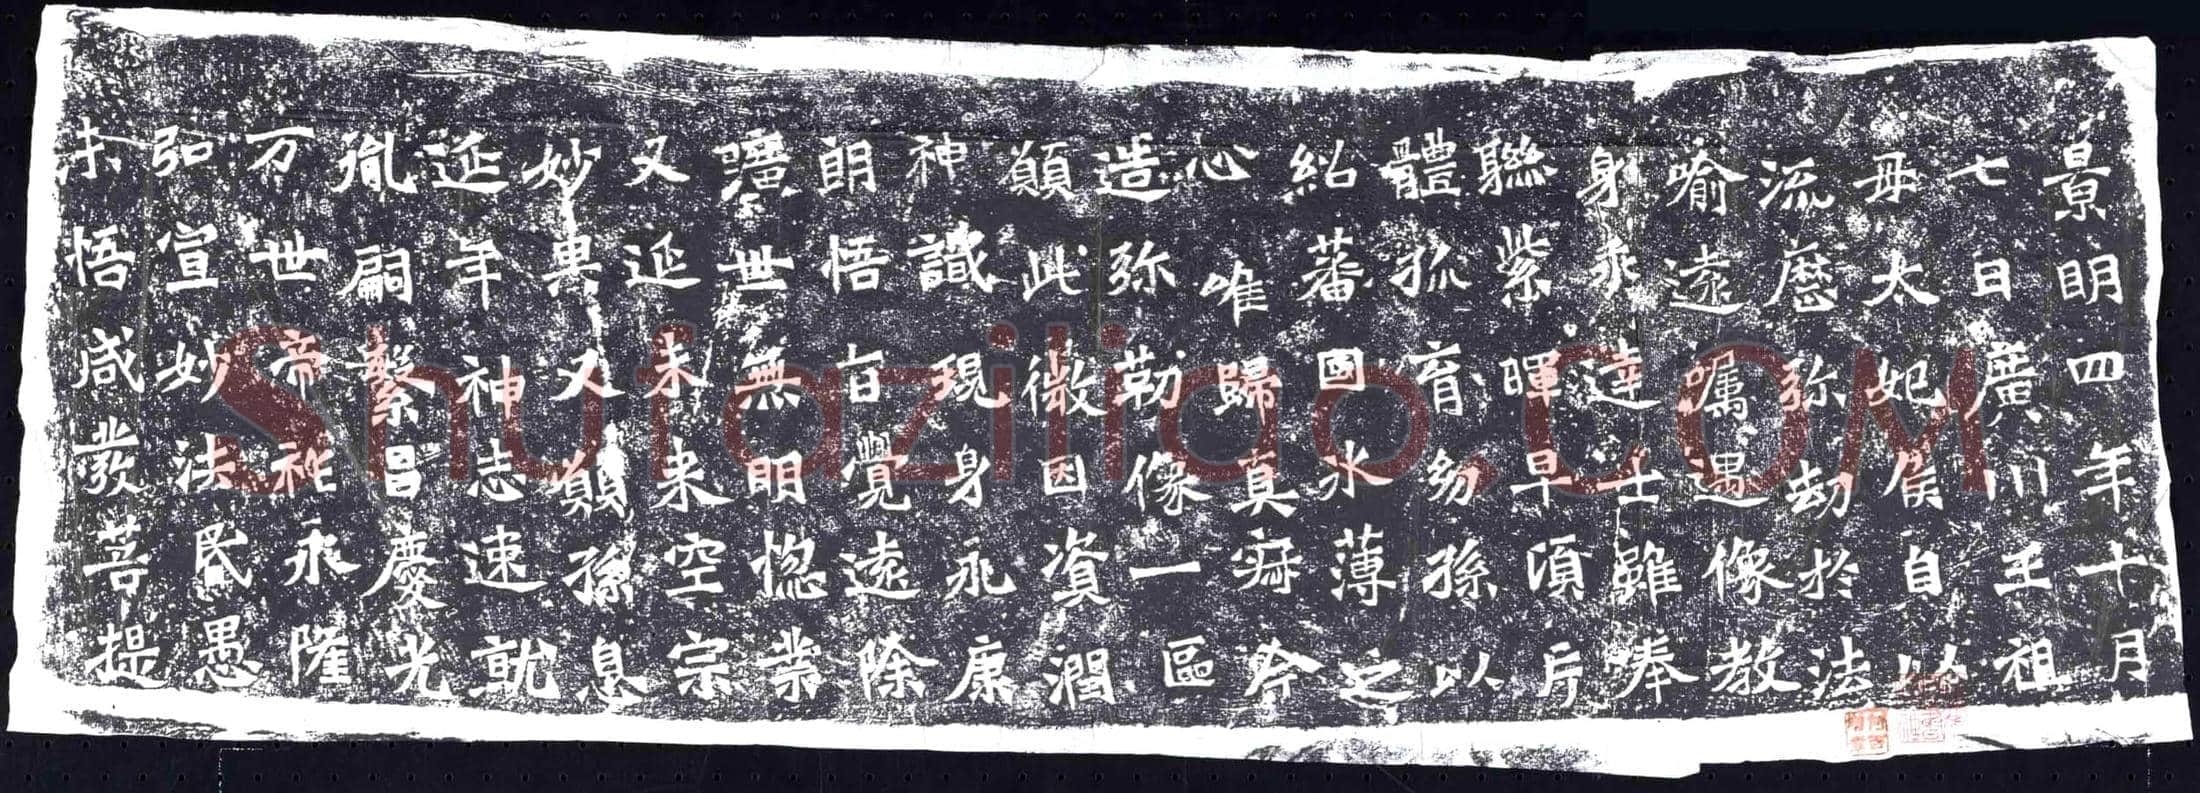 景明四年十月
七日廣川王祖
母太妃侯自以
流歷弥劫於法
喻遠嘱遇像教
身乖達士雖奉
聯紫暉早頃片
體孤育幼孫以
紹蕃國氷薄之
心唯歸真寂今
造弥勒像一區
願此微因資潤
神識現身永康
朗悟旨覺遠除
曠世無明惚業
又延未来空宗
妙果又願孫息
延年神志速就
胤嗣繁昌慶光
万世帝祚永隆
弘宣妙法昏愚
未悟咸發菩提
Shufaziliao.COM